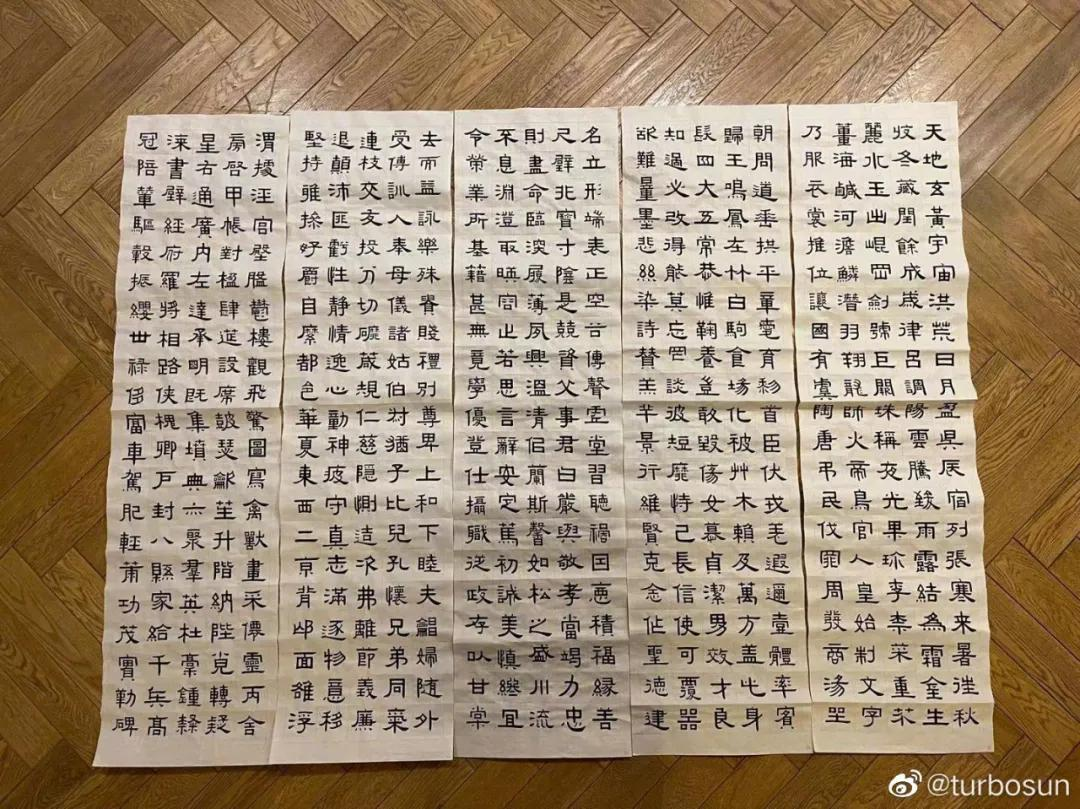 天地玄黃宇宙洪荒日月盈昃辰宿列張寒来暑往秋
收冬藏閏餘成歲律呂調陽雲騰致雨露結為霜金生
麗水玉出崐岡劍號巨闕珠稱夜光果珎李柰菜重芥
薑海鹹河澹鱗潛羽翔龍師火帝鳥官人皇始制文字
乃服衣裳推位讓國有虞陶唐弔民伐罪周發商湯坐
朝問道垂拱平章愛育黎首臣伏戎羌遐邇壹體率賓
歸王鳴鳳在竹白駒食場化被艸木賴及萬方盖此身
髮四大五常恭惟鞠養豈敢毀傷女慕貞潔男效才良
知過必改得能莫忘罔談彼短靡恃己長信使可覆器
欲難量墨悲絲染詩贊羔羊景行維賢克念作聖德建
名立形端表正空谷傳聲虛堂習聽禍因惡積福縁善
尺璧非寶寸陰是競資父事君曰嚴與敬孝當竭力忠
則盡命臨深履薄夙興溫清侣蘭斯馨如松之盛川流
不息淵澄取暎容止若思言辭安定篤初誠美慎終宜
令榮業所基藉甚無竟學優登仕攝職從政存以甘棠
去而益詠樂殊貴賤禮別尊卑上和下睦夫唱婦随外
受傅訓入奉母儀諸姑伯叔猶子比兒孔懷兄弟同氣
連枝交友投分切磨箴規仁慈隱惻造次弗離節義廉
退顛沛匪虧性静情逸心動神疲守真志滿逐物意移
堅持雅操好爵自縻都邑華夏東西二京背邙面雒浮
渭據涇宮殿盤鬱樓觀飛驚圖寫禽獸畫采僊靈丙舍
傍啓甲帳對楹肆筵設席鼓瑟吹笙升階納陛弁轉疑
星右通廣内左達承明既集墳典亦聚羣英杜稾鍾隸
漆書壁經府羅將相路俠槐卿戶封八縣家給千兵高
冠陪輦驅轂振纓世禄侈富車駕肥輕策功茂實勒碑
@turbosun